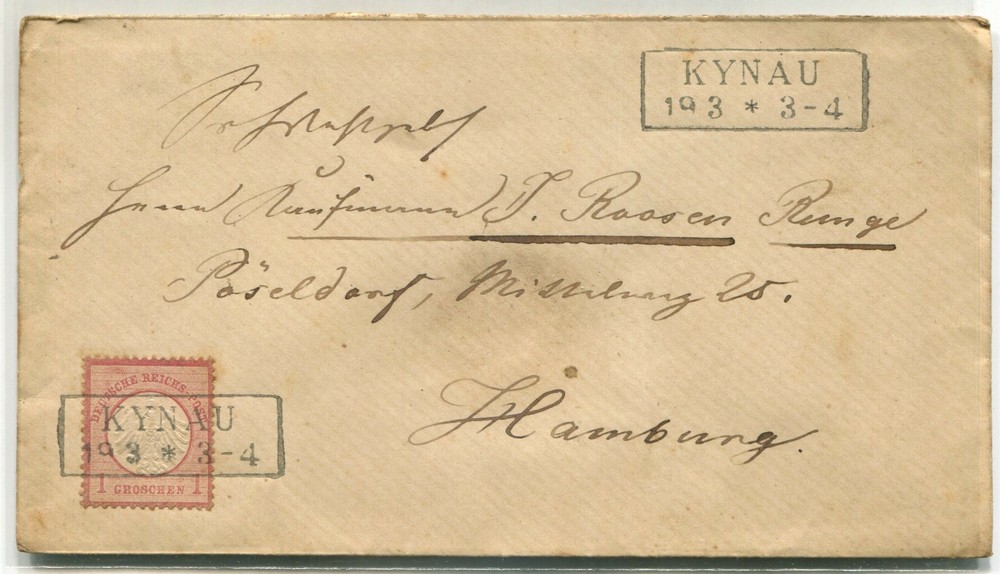 KYNAU
19 3 * 3-4
Herrn Kaufmann J. Roosen Runge
Pöseldorf, Mittelweg 25.
Hamburg.
DEUTSCHE REICHS-POST
KYNAU
19 3 * 3-4
1 GROSCHEN 1